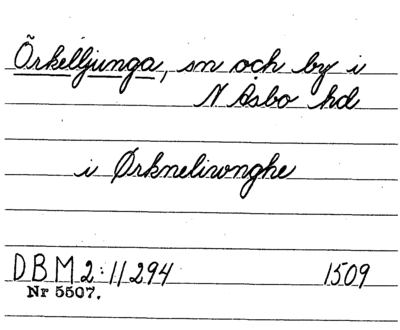 Örkelljunga, sn och by i
N Åsbo hd
i Ørkneliwnghe
DBM 2:11 294 1509
Nr 5507.